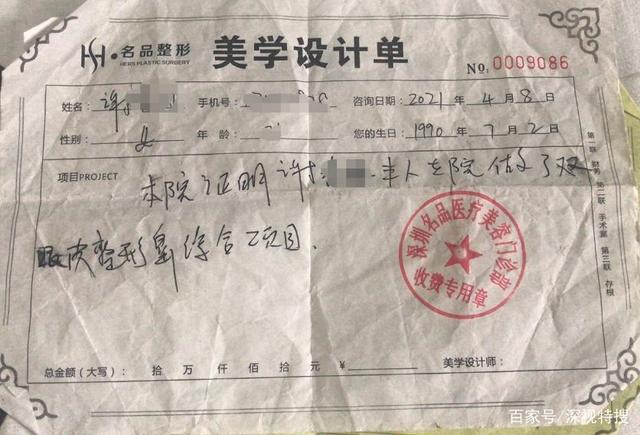 名品整形
HERS PLASTIC SURGERY
美学设计单
NO: 0009086
姓名: 许 手机号 咨询日期: 2021 年 4 月 8 日
性别: 女 年 龄: 您的生日: 1990 年 7 月 2 日
项目PROJECT 本院证明许 本人在院做了双
眼皮整形 综合项目、
深圳名品医疗美容门诊部
收费专用章
第一联 财务 第二联 手术室 第三联 存根
总金额(大写): 拾 万 仟 佰 拾 元 ¥ 美学设计师:
百家号/深视特搜